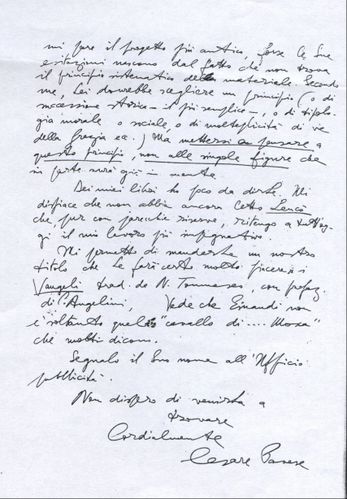 mi pare il progetto più antico, forse le Sue
esitazioni nascono dal fatto che non trova
il principio sistematico del materiale. Secondo
me, Lei dovrebbe scegliere un principio (o di
successione storica – il più semplice –, o di tipolo-
gia morale o sociale, o di molteplicità di
della grazia ec.) Ma mettersi a pensare a
questo principio, non alle singole figure che
in parte avrà già in mente
Dei miei libri ho poco da dirLe. Mi
dispiace che non abbia ancora letto Leucò
che, pur con parecchie riserve, ritengo a tutt'og-
gi il mio lavoro più impegnativo.
Mi permetto di mandarLe un nostro
titolo che Le farà certo molto piacere: i
Vangeli trad. di N. Tommaseo, con prefaz.
di C. Angelini. Vede che Einaudi non
è soltanto quel "cavallo di ... Mosca"
che molti dicono.
Segnalo il Suo nome all'Ufficio
pubblicità.
Non dispero di venirLa a
trovare
Cordialmente
Cesare Pavese